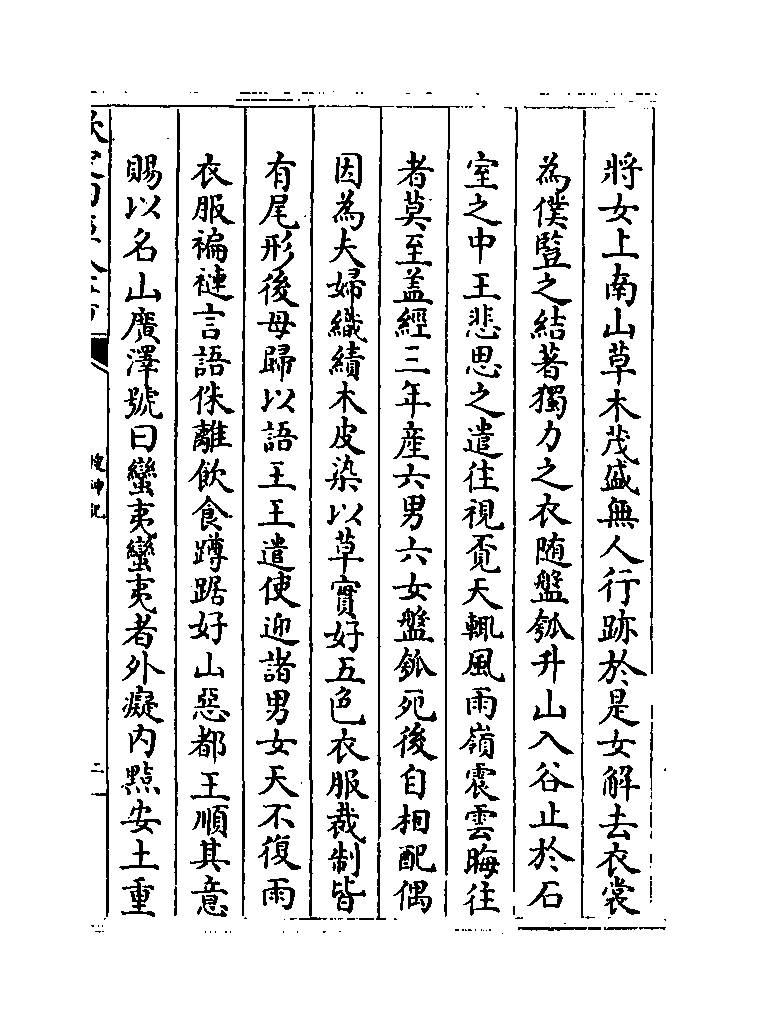 將女上南山草木茂盛無人行跡於是女解去衣裳
為僕豎之結著獨力之衣随盤瓠升山入谷止於石
室之中王悲思之遣往視覔天輒風雨嶺震雲晦往
者莫至盖經三年産六男六女盤瓠死後自相配偶
因為夫婦織績木皮染以草實好五色衣服裁制皆
有尾形後母歸以語王王遣使迎諸男女天不復雨
衣服褊褳言語侏離飲食蹲踞好山惡都王順其意
賜以名山廣澤號曰蠻夷蠻夷者外癡内黠安土重
搜神記